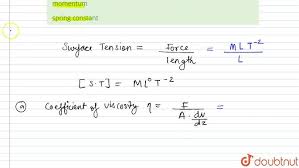 momentum
spring constant
Surface Tension = Force / length = M L T⁻² / L
[S.T] = M L⁰ T⁻²
(a) Coefficient of viscosity η = F / A · dv/dz =
doubtnut